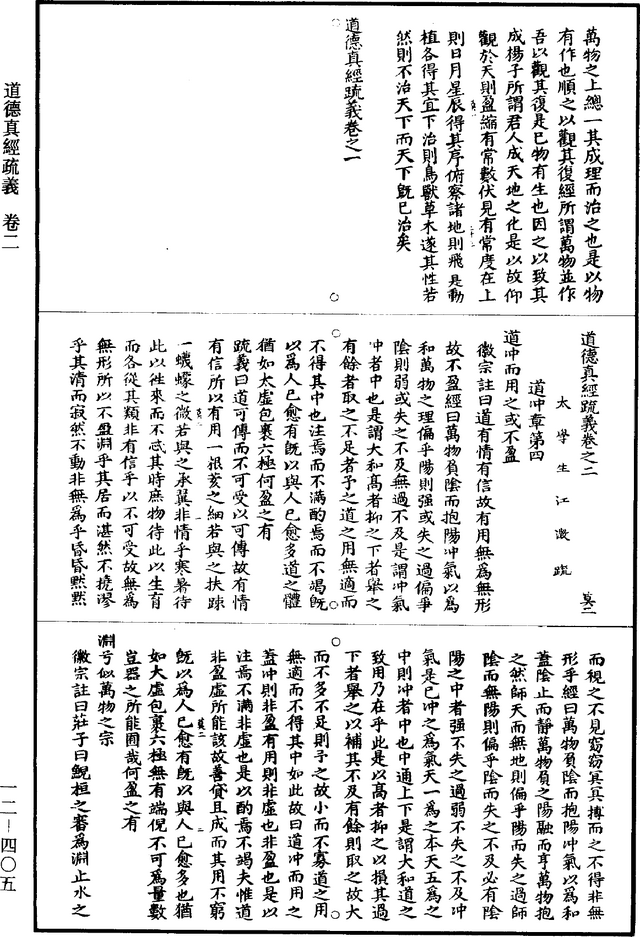 道德真經疏義　卷二
萬物之上總一其成理而治之也是以物
有作也順之以觀其復經所謂萬物並作
吾以觀其復是已物有生也因之以致其
成楊子所謂君人成天地之化是以故仰
觀於天則盈縮有常數伏見有常度在上
則日月星辰得其序俯察諸地則飛走動
植各得其宜下治則鳥獸草木遂其性若
然則不治天下而天下旣已治矣
道德真經疏義卷之一
道德真經疏義卷之二
太學生江澂疏
道冲章第四
道冲而用之或不盈
徽宗註曰道有情有信故有用無爲無形
故不盈經曰萬物負陰而抱陽冲氣以爲
和萬物之理偏乎陽則强或失之過偏乎
陰則弱或失之不及無過不及是謂冲氣
冲者中也是謂大和高者抑之下者舉之
有餘者取之不足者予之道之用無適而
不得其中也注焉而不滿酌焉而不竭旣
以爲人已愈有旣以與人已愈多道之體
猶如太虛包裹六極何盈之有
疏義曰道可傳而不可受以可傳故有情
有信所以有用一根荄之細若與之扶踈
一蠛蠓之微若與之承翼非情乎寒暑待
此以往來而不忒其時庶物待此以生育
而各從其類非有信乎以不可受故無爲
無形所以不盈淵乎其居而湛然不撓漻
乎其清而寂然不動非無爲乎昏昏默默
而視之不見窈窈冥冥摶之不得非無
形乎經曰萬物負陰而抱陽冲氣以爲和
蓋陰止而靜萬物負之陽融而亨萬物抱
之然師天而無地則偏乎陽而失之過師
陰而無陽則偏乎陰而失之不及必有陰
陽之中者强不失之過弱不失之不及冲
氣是已冲之爲氣天一爲之本天五爲之
中則冲者中也中通上下是謂大和道之
致用乃在乎此是以高者抑之以損其過
下者舉之以補其不及有餘則取之故大
而不多不足則予之故小而不寡道之用
無適而不得其中如此故曰道冲而用之
蓋冲則非盈有用則非虛也非盈也是以
注焉不滿非虛也是以酌焉不竭夫惟道
非盈虛所能該故善貸且成而其用不窮
旣以爲人已愈有旣以與人已愈多也猶
如大虛包裹六極無有端倪不可爲量數
豈器之所能囿哉何盈之有
淵兮似萬物之宗
徽宗註曰莊子曰鯢桓之審爲淵止水之
一二－四〇五